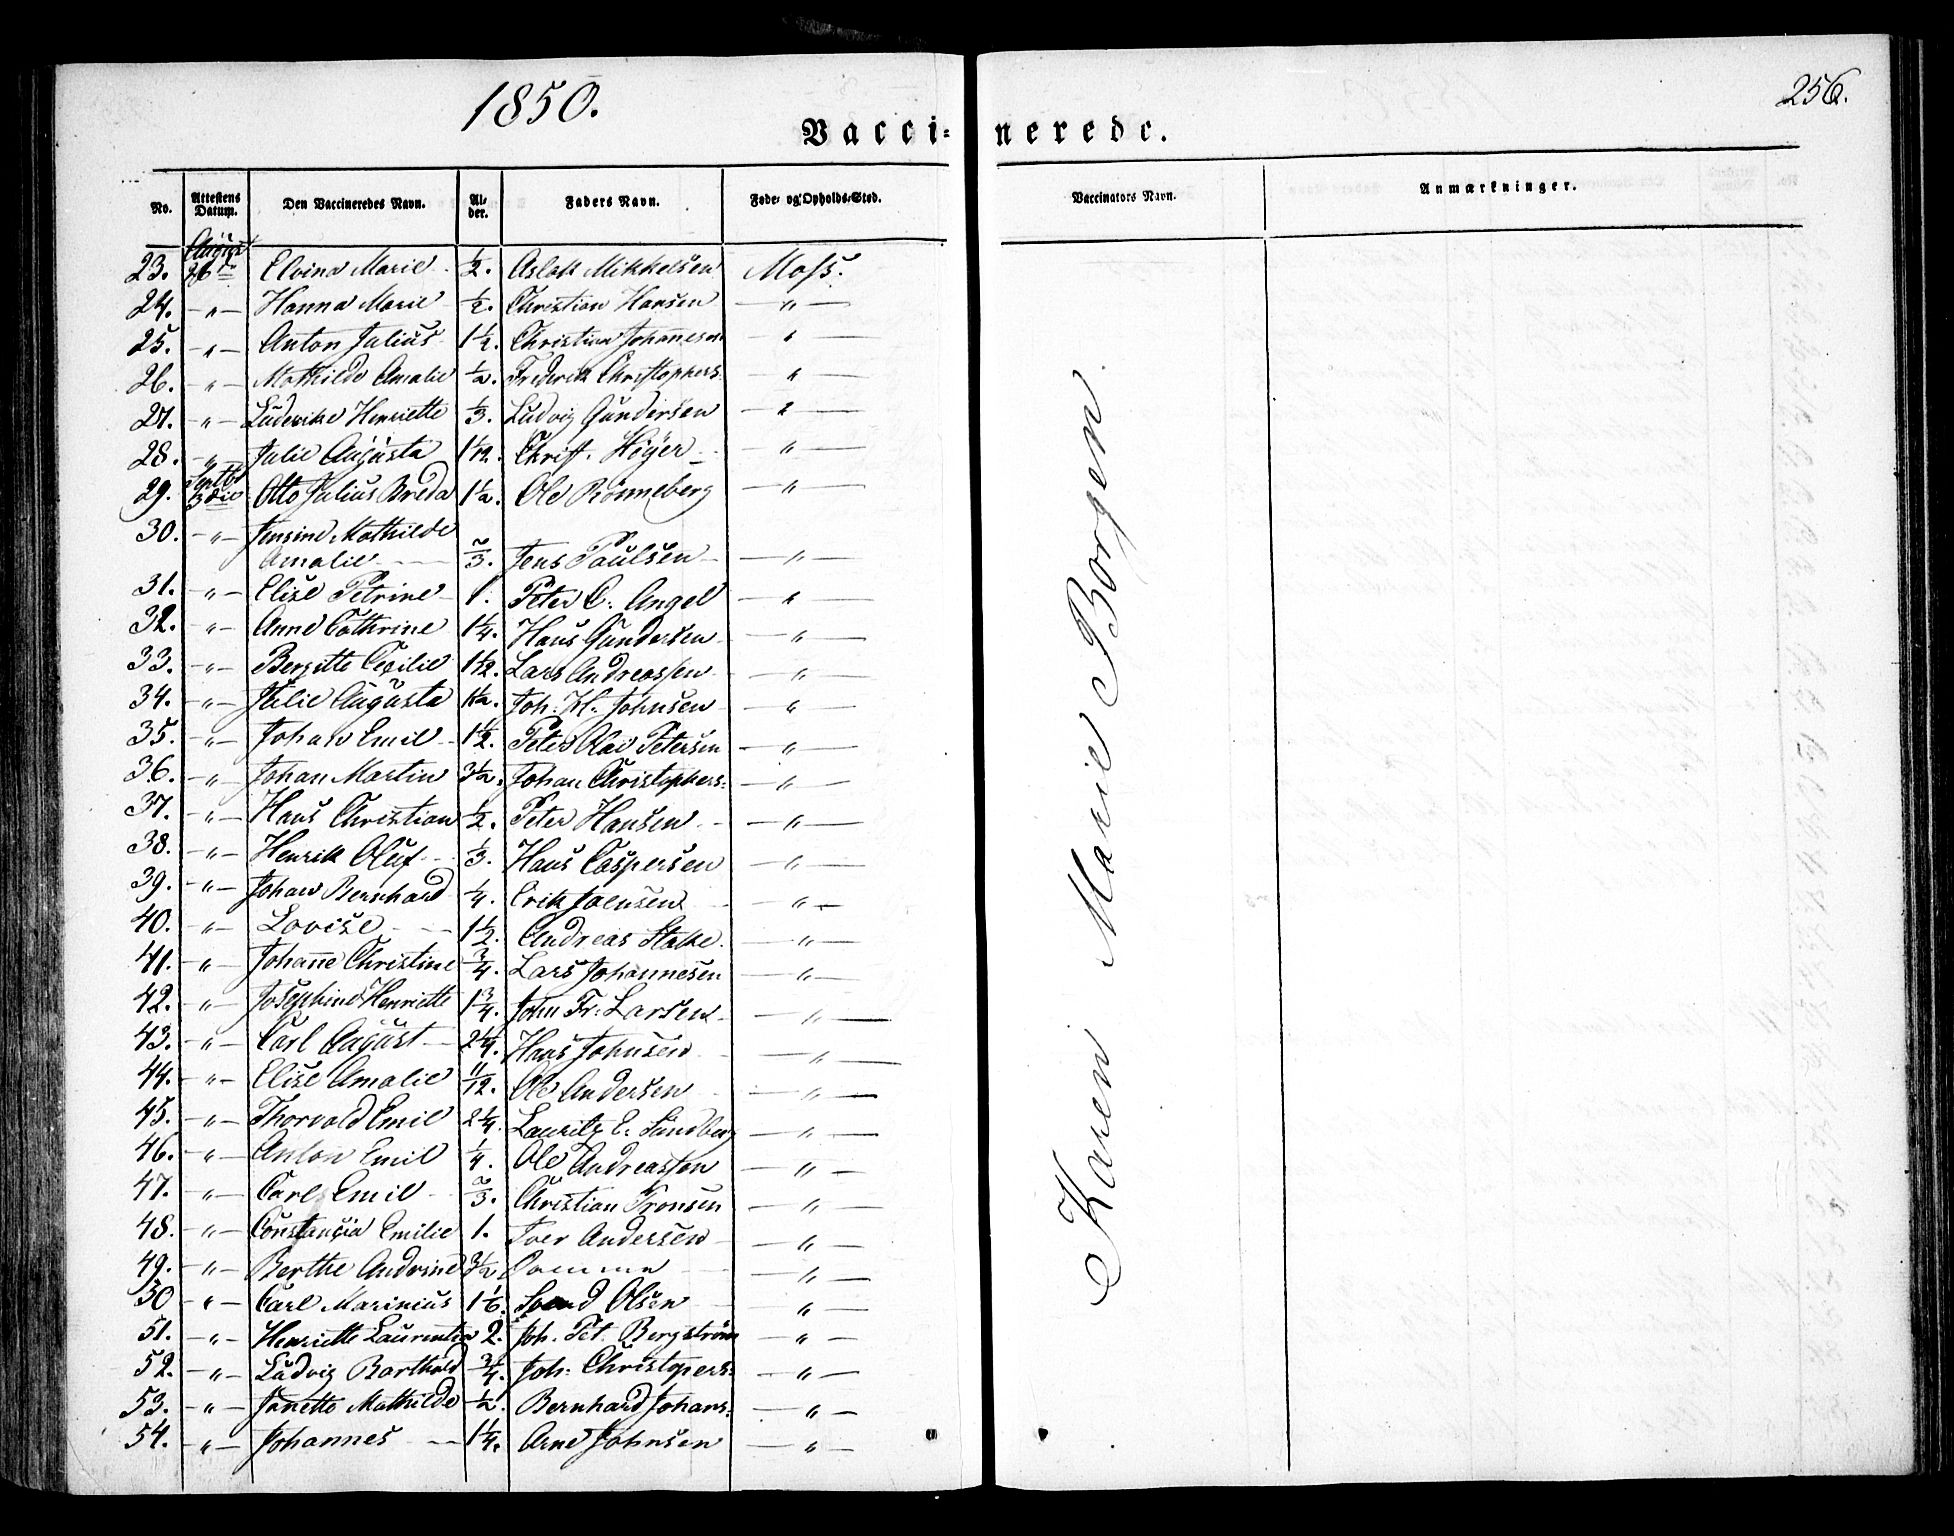 1850.
256.
Vacci= nerede.
No. Attestens Datum. Den Vaccineredes Navn. Al-der. Faders Navn. Føde- og Opholds-Sted. Vaccinators Navn. Anmærkninger.
23. August 26de Elvina Marie 1/2. Aslak Mikkelsen Moss.
24. -"- Hanna Marie 1/2. Christian Hansen -"-
25. -"- Anton Julius 1 1/2. Christian Johannesen -"-
26. -"- Mathilde Amalie 1/2. Frederik Christophers. -"-
27. -"- Luderike Henriette 1/3. Ludvig Gundersen -"-
28. -"- Julie Augusta 1 1/12. Christ. Høyer -"-
29. Septbr 3die Otto Julius Breda 1 1/2. Ole Rønneberg -"-
30. -"- Jensine Mathilde
Amalie 2/3. Jens Paulsen -"-
31. -"- Elise Petrine 1. Peter C. Angel -"-
32. -"- Anne Cathrine 1 1/4. Hans Gundersen -"-
33. -"- Bergitte Cecilie 1 1/2. Lars Andreassen -"-
34. -"- Julie Augusta 1 1/2. Joh. H. Johnsen -"-
35. -"- Johan Emil 1 1/2. Peter Olai Petersen -"-
36. -"- Johan Martin 3 1/2. Johan Christophers: -"-
37. -"- Hans Christian 1/2. Peter Hansen -"-
38. -"- Henrik Oluf 1/3. Hans Caspersen -"-
39. -"- Johan Bernhard 1/4. Erik Joensen -"-
40. -"- Lovise 1 1/2. Andreas Stake. -"-
41. -"- Johanne Christine 3/4. Lars Johannesen -"-
42. -"- Josephine Henriette 1 3/4. John Fr. Larsen -"-
43. -"- Carl August 2 1/4. Hans Johnsen -"-
44. -"- Elise Amalie 11/12. Ole Andersen -"-
45. -"- Thorvald Emil 2 1/4. Lauritz E. Sandberg -"-
46. -"- Anton Emil 1/4. Ole Andreassen -"-
47. -"- Carl Emil 2/3. Christian Tronsen -"-
48. -"- Constancia Emilie 1. Iver Andersen -"-
49. -"- Berthe Andrine 3 1/2 -"-
50 -"- Carl Marinius 1 1/6. Svend Olsen -"-
51. -"- Henriette Laurentin 2. Joh. Pet. Bergstrøm -"-
52. -"- Ludvig Barthold 3/4. Joh. Christopers: -"-
53. -"- Janette Mathilde 1/2. Bernhard Johans: -"-
54. -"- Johannes 1 1/4. Arne Johnsen -"-
Karen Marie Borgen.